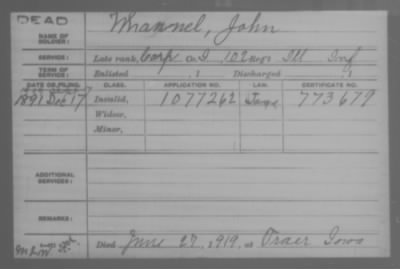 DEAD
NAME OF SOLDIER: Whannel, John
SERVICE: Late rank, Corp Co. I, 102 Reg't Ill Inf
TERM OF SERVICE: Enlisted , 1 Discharged , 1
DATE OF FILING. CLASS. APPLICATION NO. LAW. CERTIFICATE NO.
1891 Dec 17 Invalid, 1077262 773679
Widow,
Minor,
ADDITIONAL SERVICES:
REMARKS:
Died June 27, 1919, at Traer Iowa